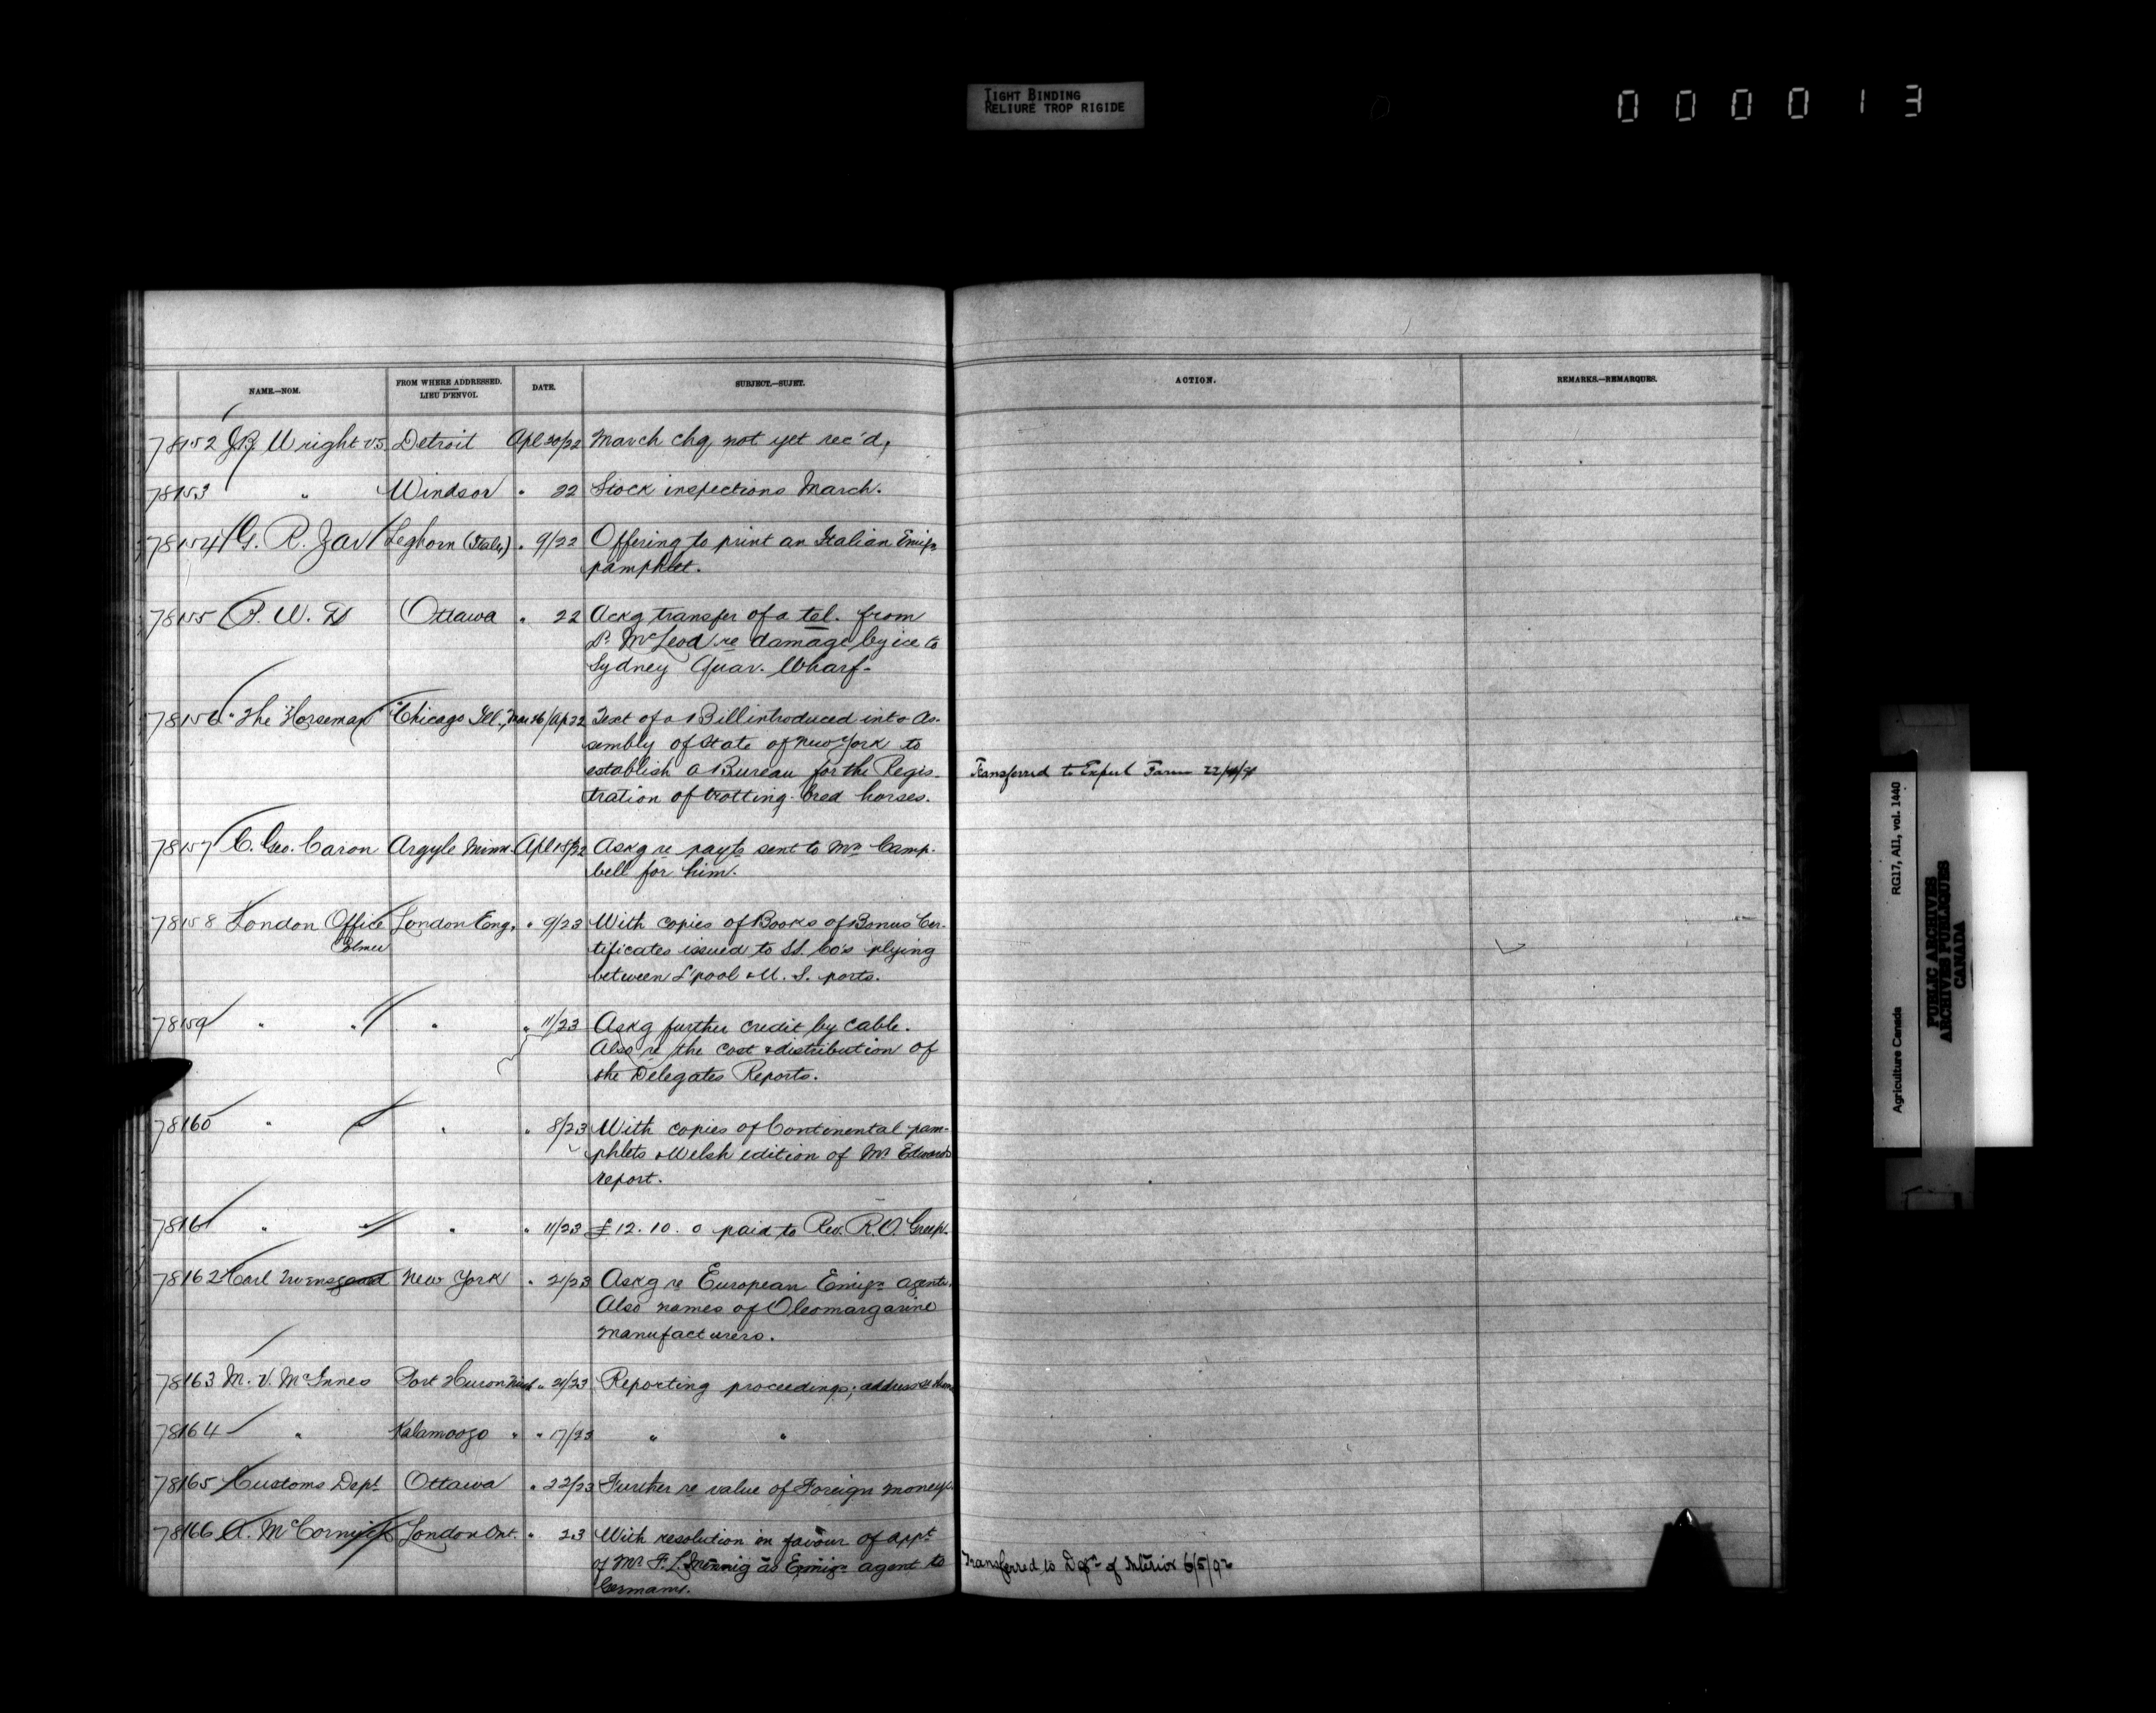 TIGHT BINDING
RELIURE TROP RIGIDE
000013
NAME.—NOM. FROM WHERE ADDRESSED. LIEU D'ENVOI. DATE. SUBJECT.—SUJET. ACTION. REMARKS.—REMARQUES.
78152 J.B. Wright VS. Detroit Apl 20/22 March chq. not yet rec'd,
78153 " Windsor " 22 Stock inspections March.
78154 G. R. Zav Leghorn (Italy) " 9/22 Offering to print an Italian Emign
pamphlet.
78155 P. W. D Ottawa " 22 Ackg transfer of a tel. from
Dr McLeod re damage by ice to
Sydney Quar. Wharf.
78156 "The Horseman" Chicago Ill., Mar 26/Ap 22 Text of a Bill introduced into As-
sembly of State of New York to
establish a Bureau for the Regis-
tration of trotting-bred horses.
Transferred to Expul Farm 22/4/91
78157 C. Geo. Caron Argyle Minn. Apl 18/22 Askg re payts sent to Mr Camp-
bell for him.
78158 London Office London Eng. " 9/23 With copies of Books of Bonus Cer-
Colmer
tificates issued to SS. Co's plying
between L'pool & U. S. ports.
78159 " " " " 11/23 Askg further credit by cable.
Also re the cost & distribution of
the Delegates Reports.
78160 " " " " 8/23 With copies of Continental pam-
phlets & Welsh edition of Mr Edwards
report.
78161 " " " " 11/23 £12. 10. 0 paid to Rev. R.O.
78162 Carl New York " 21/23 Askg re European Emign agents.
Also names of Oleomargarine
manufacturers.
78163 M. V. McInnes Port Huron Mich " 21/23 Reporting proceedings; address
78164 " Kalamoozo " " 17/23 " "
78165 Customs Dept Ottawa " 22/23 Further re value of Foreign moneys.
78166 A. McCormick London Ont. " 23 With resolution in favour of appt
of Mr F. L. as Emign agent to
Germany.
Transferred to Dept of Interior 6/5/92
Agriculture Canada RG17, AI1, vol. 1440
PUBLIC ARCHIVES
ARCHIVES PUBLIQUES
CANADA